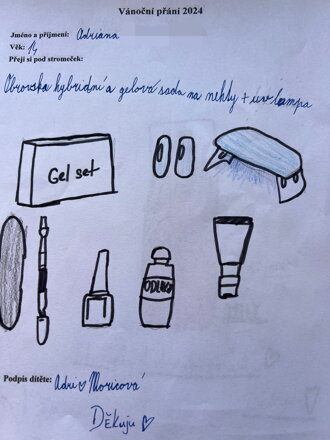 Vánoční přání 2024
Jméno a příjmení: Adriana
Věk: 14
Přeji si pod stromeček:
Obrovska hybridní a gelová sada na nehty + uv lampa
Gel set
Podpis dítěte: Adri Moricová
Děkuju